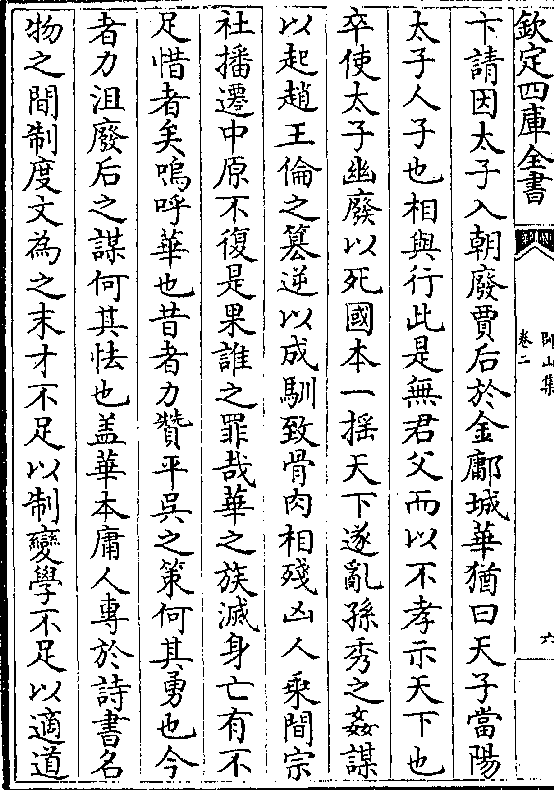 欽定四庫全書
師山集
卷二
六
卞請因太子入朝廢賈后於金鄘城華猶曰天子當陽
太子人子也相與行此是無君父而以不孝示天下也
卒使太子幽廢以死國本一摇天下遂亂孫秀之姦謀
以起趙王倫之簒逆以成馴致骨肉相殘凶人乘間宗
社播遷中原不復是果誰之罪哉華之族滅身亡有不
足惜者矣嗚呼華也昔者力贊平吳之策何其勇也今
者力沮廢后之謀何其怯也盖華本庸人專於詩書名
物之間制度文為之末才不足以制變學不足以適道